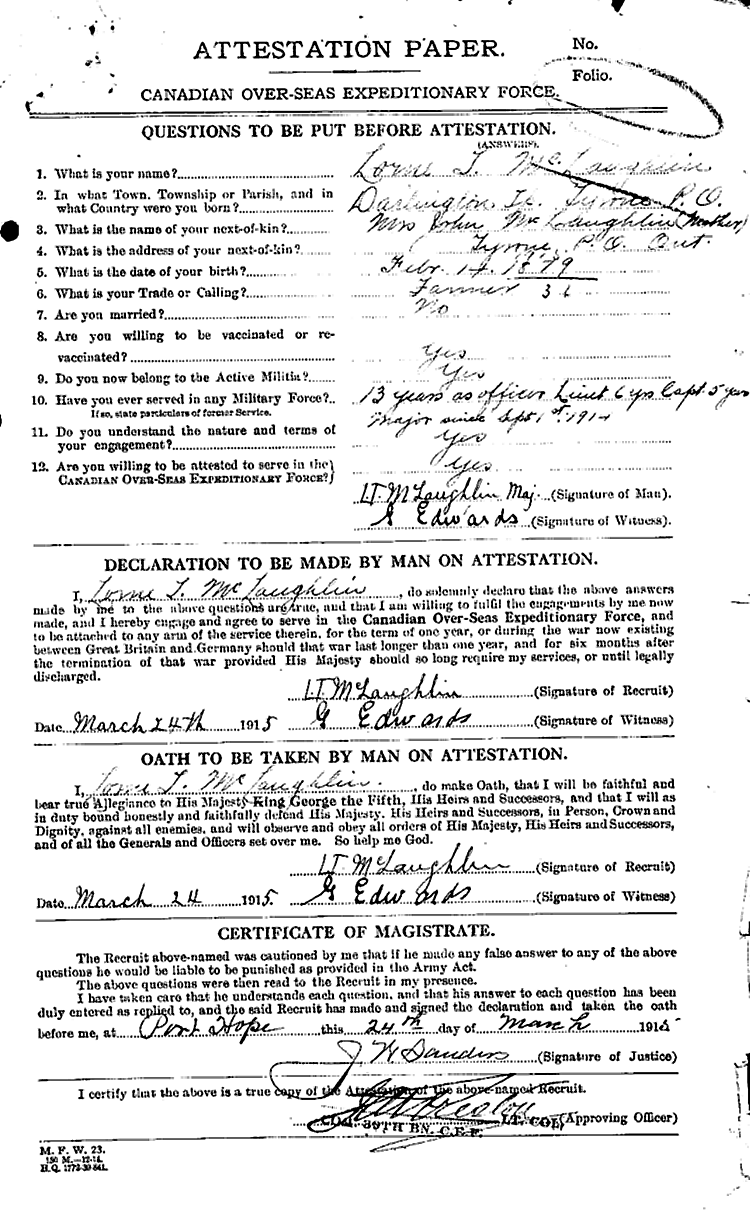 ATTESTATION PAPER.
No.
Folio.
CANADIAN OVER-SEAS EXPEDITIONARY FORCE.
QUESTIONS TO BE PUT BEFORE ATTESTATION.
(ANSWERS).
1. What is your name? Lorne T. McLaughlin
2. In what Town, Township or Parish, and in
what Country were you born? Darlington Tyrone P.O.
3. What is the name of your next-of-kin? Mrs John McLaughlin (Mother)
4. What is the address of your next-of-kin? Tyrone, P.O. Ont.
5. What is the date of your birth? Febr. 14. 1879
6. What is your Trade or Calling? Farmer 36
7. Are you married? No
8. Are you willing to be vaccinated or re-
vaccinated? Yes
9. Do you now belong to the Active Militia? Yes
10. Have you ever served in any Military Force? 13 years as officer Lieut 6 yrs Capt. 5 years
If so, state particulars of former Service. Major since Sept 1st. 1914
11. Do you understand the nature and terms of
your engagement? Yes
12. Are you willing to be attested to serve in the
CANADIAN OVER-SEAS EXPEDITIONARY FORCE? Yes
LT McLaughlin Maj. (Signature of Man).
G Edwards (Signature of Witness).
DECLARATION TO BE MADE BY MAN ON ATTESTATION.
I, Lorne T. McLaughlin, do solemnly declare that the above answers
made by me to the above questions are true, and that I am willing to fulfil the engagements by me now
made, and I hereby engage and agree to serve in the Canadian Over-Seas Expeditionary Force, and
to be attached to any arm of the service therein, for the term of one year, or during the war now existing
between Great Britain and Germany should that war last longer than one year, and for six months after
the termination of that war provided His Majesty should so long require my services, or until legally
discharged.
LT McLaughlin (Signature of Recruit)
Date March 24th 1915 G Edwards (Signature of Witness)
OATH TO BE TAKEN BY MAN ON ATTESTATION.
I, Lorne T. McLaughlin, do make Oath, that I will be faithful and
bear true Allegiance to His Majesty King George the Fifth, His Heirs and Successors, and that I will as
in duty bound honestly and faithfully defend His Majesty, His Heirs and Successors, in Person, Crown and
Dignity, against all enemies, and will observe and obey all orders of His Majesty, His Heirs and Successors,
and of all the Generals and Officers set over me. So help me God.
LT McLaughlin (Signature of Recruit)
Date March 24 1915. G Edwards (Signature of Witness)
CERTIFICATE OF MAGISTRATE.
The Recruit above-named was cautioned by me that if he made any false answer to any of the above
questions he would be liable to be punished as provided in the Army Act.
The above questions were then read to the Recruit in my presence.
I have taken care that he understands each question, and that his answer to each question has been
duly entered as replied to, and the said Recruit has made and signed the declaration and taken the oath
before me, at Port Hope this 24th day of March 1915
J W Sanders (Signature of Justice)
I certify that the above is a true copy of the Attestation of the above-named Recruit.
LT. COL. (Approving Officer)
39TH BN. C.E.F.
M. F. W. 23.
150 M.—12-14.
H.Q. 1772-39-841.